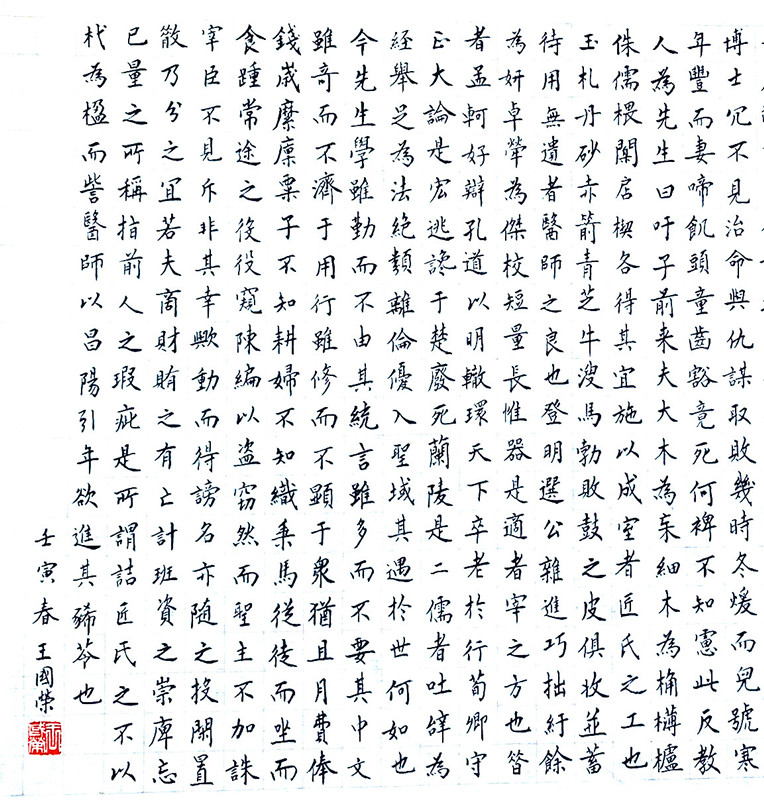 博士冗不見治命與仇謀取敗幾時冬煖而兒號寒
年豐而妻啼飢頭童齒豁竟死何裨不知慮此反教
人為先生曰吁子前来夫大木為杗細木為桷欂櫨
侏儒椳闑扂楔各得其宜施以成室者匠氏之工也
玉札丹砂赤箭青芝牛溲馬勃敗鼓之皮俱收並蓄
待用無遺者醫師之良也登明選公雜進巧拙紆餘
為妍卓犖為傑校短量長惟器是適者宰之方也昔
者孟軻好辯孔道以明轍環天下卒老於行荀卿守
正大論是宏逃讒于楚廢死蘭陵是二儒者吐辭為
經舉足為法絕類離倫優入聖域其遇於世何如也
今先生學雖勤而不由其統言雖多而不要其中文
雖奇而不濟于用行雖修而不顯于衆猶且月費俸
錢歲糜廩粟子不知耕婦不知織乘馬從徒而坐而
食踵常途之役役窺陳編以盜竊然而聖主不加誅
宰臣不見斥非其幸歟動而得謗名亦随之投閑置
散乃分之宜若夫商財賄之有亡計班資之崇庳忘
已量之所稱指前人之瑕疵是所謂詰匠氏之不以
杙為楹而訾醫師以昌陽引年欲進其豨苓也
壬寅春王國榮